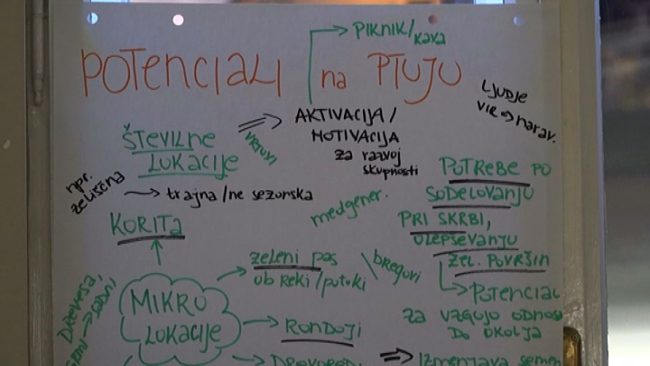 PIKNIK/
KAVA
POTENCIALI na PTUJU
LJUDJE
VIR⇒narav.
AKTIVACIJA/
MOTIVACIJA
ZA razvoj
skupnosti
ŠTEVILNE
LOKACIJE
npr.
zeliščna
→ trajna/ne sezonska
POTREBE PO
SODELOVANJU
PRI SKRBI,
ULEPŠEVANJU
ZEL. POVRŠIN
medgener.
KORITA
zeleni pas
ob reki/potoki
bregovi
POTENCIAL
ZA VZGOJO ODNOSA
DO OKOLJA
MIKRO
LOKACIJE
RONDOJI
DREVOREDI
⇒ Izmenjava semen